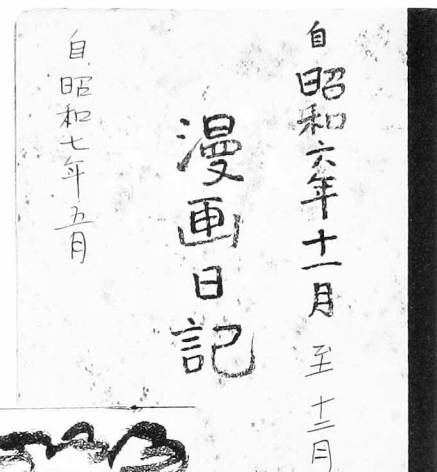 自昭和六年十一月至十二月
漫画日記
自昭和七年五月